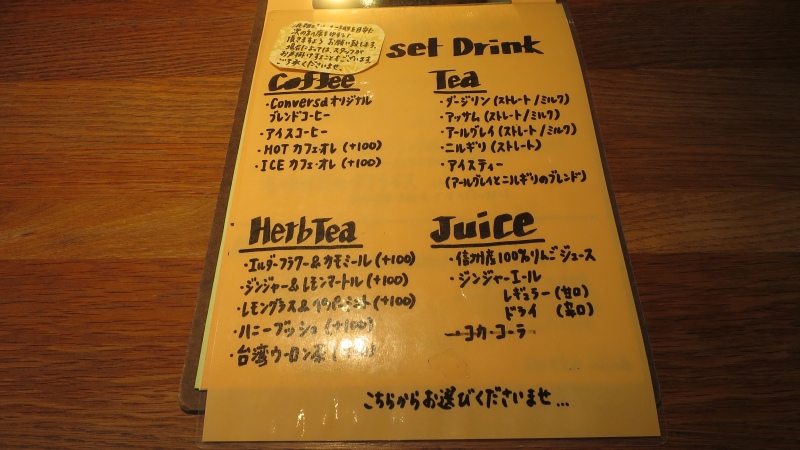 頂きますよう お願い致します。
場合によっては、スタッフが
お声掛けすることもございます。
ご了承くださいませ。
set Drink
Coffee
・Conversa オリジナル
ブレンドコーヒー
・アイスコーヒー
・HOT カフェ・オレ (+100)
・ICE カフェ・オレ (+100)
Tea
・ダージリン (ストレート/ミルク)
・アッサム (ストレート/ミルク)
・アールグレイ (ストレート/ミルク)
・ニルギリ (ストレート)
・アイスティー
(アールグレイとニルギリのブレンド)
Herb Tea
・エルダーフラワー&カモミール (+100)
・ジンジャー&レモンマートル (+100)
・レモングラス&ペパーミント (+100)
・ハニーブッシュ (+100)
・台湾ウーロン茶
Juice
・信州産100%りんごジュース
・ジンジャーエール
レギュラー (甘口)
ドライ (辛口)
・コカ・コーラ
こちらからお選びくださいませ...